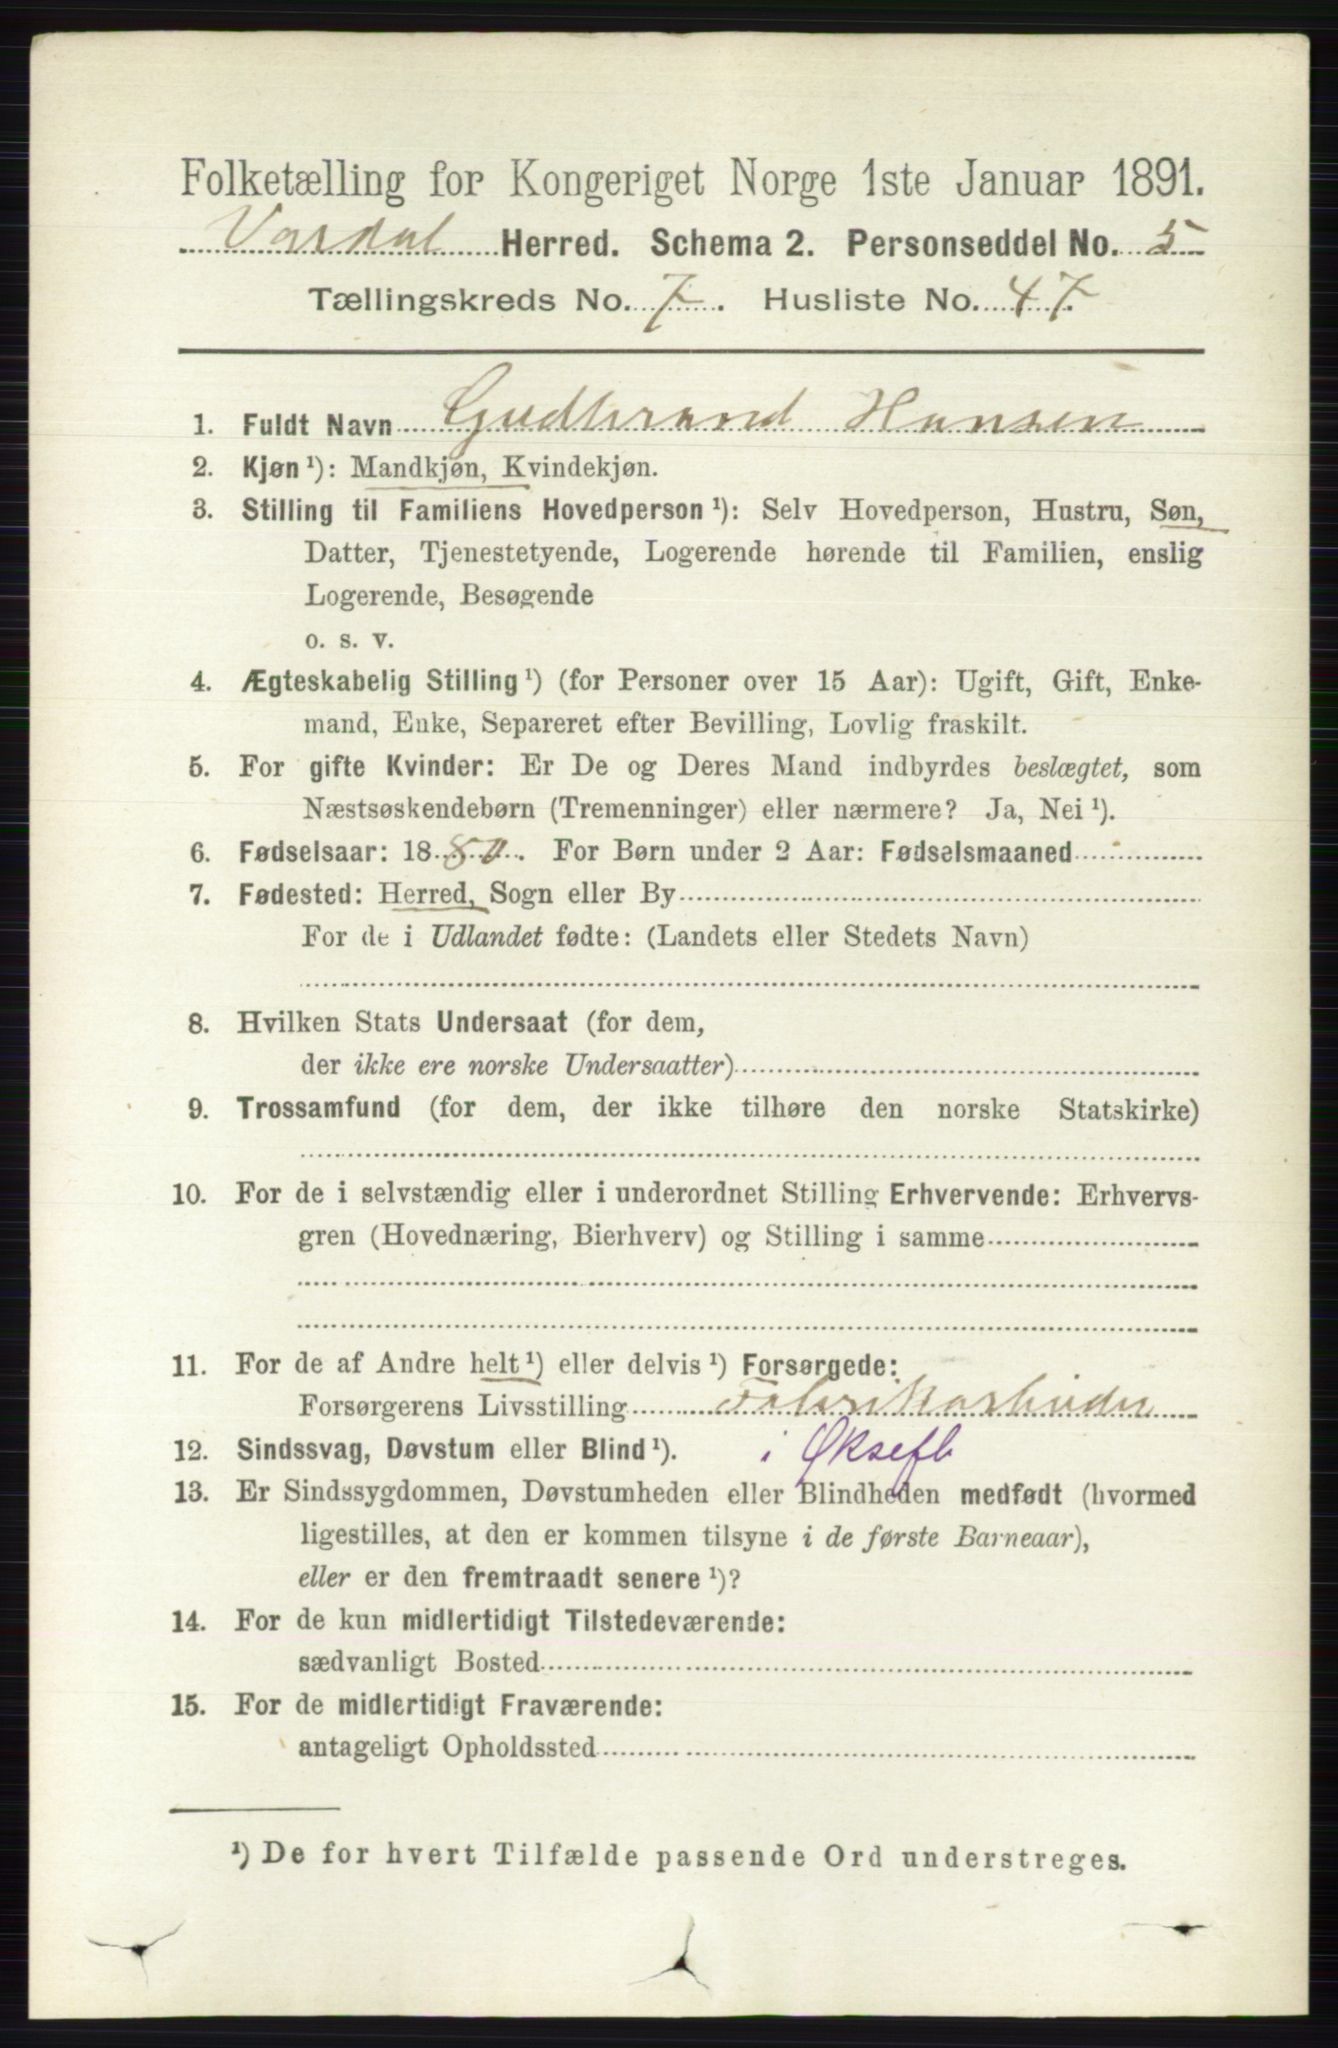 Folketælling for Kongeriget Norge 1ste Januar 1891.
Vardal Herred. Schema 2. Personseddel No. 5
Tællingskreds No. 7. Husliste No. 47.
1. Fuldt Navn Gudbrand Hansen
2. Kjøn ¹): Mandkjøn, Kvindekjøn.
3. Stilling til Familiens Hovedperson ¹): Selv Hovedperson, Hustru, Søn,
Datter, Tjenestetyende, Logerende hørende til Familien, enslig
Logerende, Besøgende
o. s. v.
4. Ægteskabelig Stilling ¹) (for Personer over 15 Aar): Ugift, Gift, Enke-
mand, Enke, Separeret efter Bevilling, Lovlig fraskilt.
5. For gifte Kvinder: Er De og Deres Mand indbyrdes beslægtet, som
Næstsøskendebørn (Tremenninger) eller nærmere? Ja, Nei ¹).
6. Fødselsaar: 1880. For Børn under 2 Aar: Fødselsmaaned
7. Fødested: Herred, Sogn eller By
For de i Udlandet fødte: (Landets eller Stedets Navn)
8. Hvilken Stats Undersaat (for dem,
der ikke ere norske Undersaatter)
9. Trossamfund (for dem, der ikke tilhøre den norske Statskirke)
10. For de i selvstændig eller i underordnet Stilling Erhvervende: Erhvervs-
gren (Hovednæring, Bierhverv) og Stilling i samme
11. For de af Andre helt ¹) eller delvis ¹) Forsørgede:
Forsørgerens Livsstilling Fabrikarbeider
12. Sindssvag, Døvstum eller Blind ¹). i Øksefb
13. Er Sindssygdommen, Døvstumheden eller Blindheden medfødt (hvormed
ligestilles, at den er kommen tilsyne i de første Barneaar),
eller er den fremtraadt senere ¹)?
14. For de kun midlertidigt Tilstedeværende:
sædvanligt Bosted
15. For de midlertidigt Fraværende:
antageligt Opholdssted
¹) De for hvert Tilfælde passende Ord understreges.